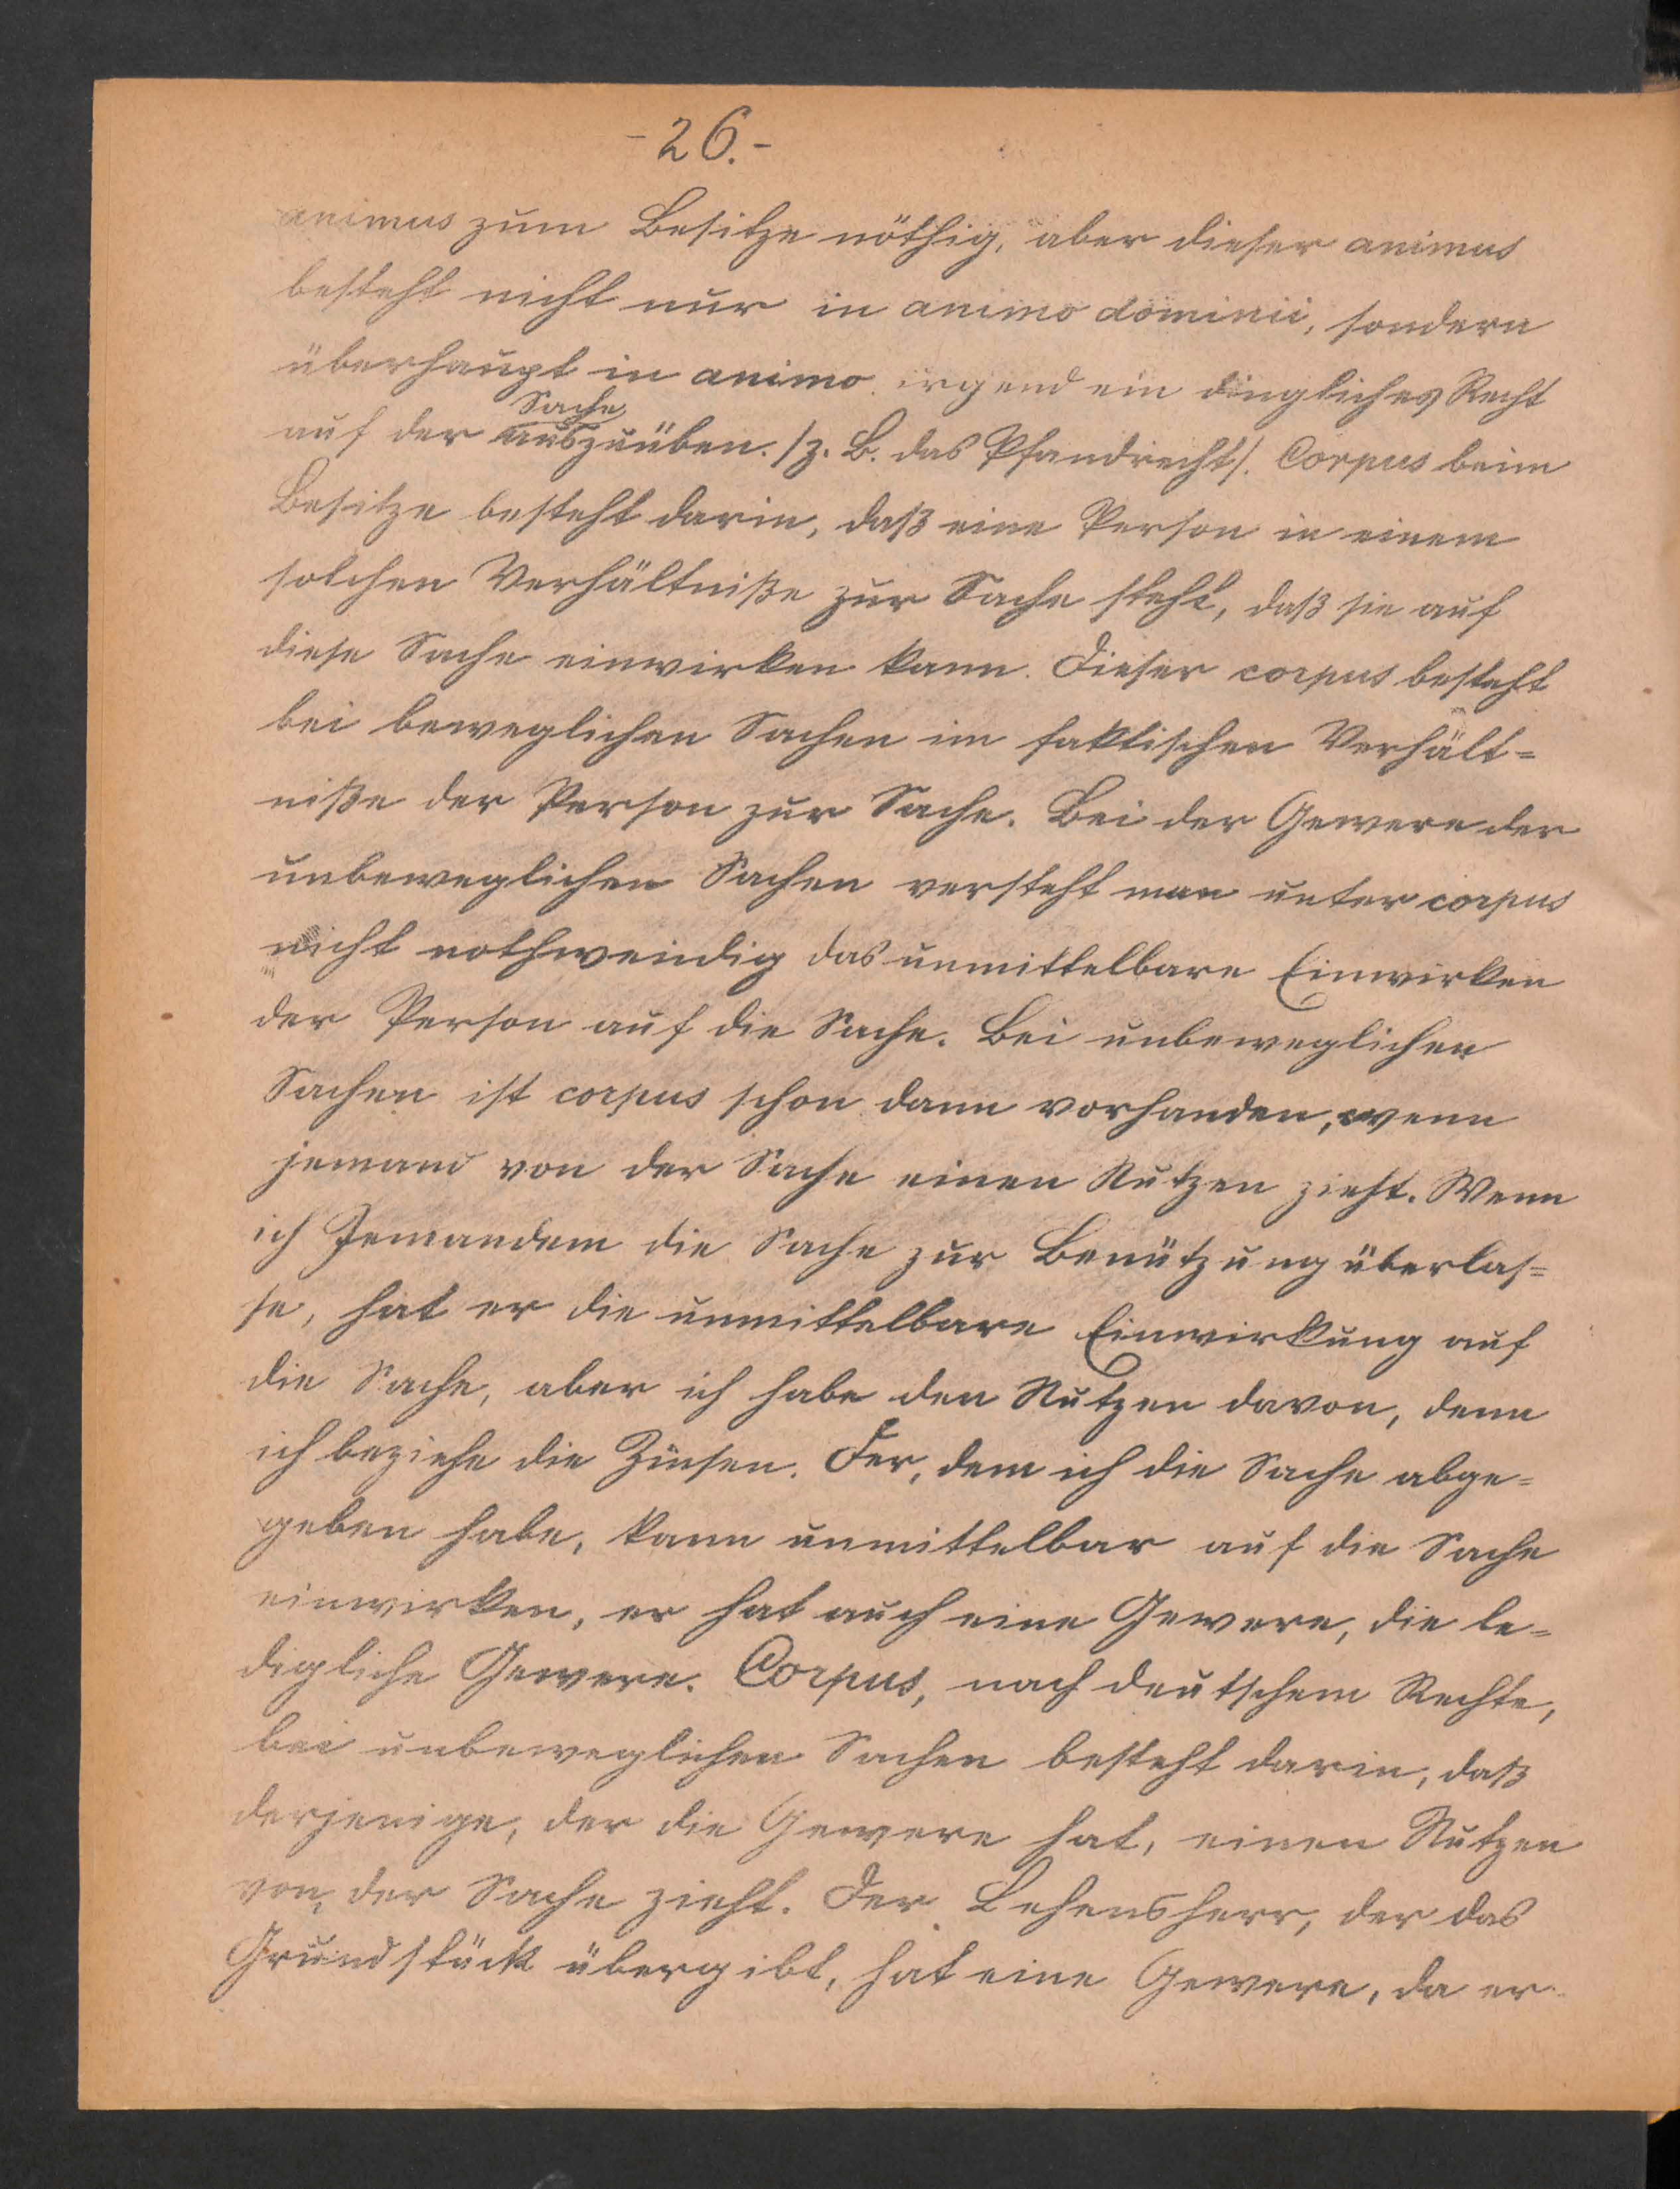 -26.-
animus zum Besitze nöthig, aber dieser animus
besteht nicht nur in animo dominii, sondern
überhaupt in animo irgend ein dingliches Recht
auf der Sache auszuüben. /z. B. das Pfandrecht/. Corpus beim
Besitze besteht darin, daß eine Person in einem
solchen Verhältniße zur Sache steht, daß sie auf
diese Sache einwirken kann. Dieser corpus besteht
bei beweglichen Sachen im faktischen Verhält=
niße der Person zur Sache. Bei der Gewere der
unbeweglichen Sachen versteht man unter corpus
nicht nothwendig das unmittelbare Einwirken
der Person auf die Sache. Bei unbeweglichen
Sachen ist corpus schon dann vorhanden, wenn
jemand von der Sache einen Nutzen zieht. Wenn
ich Jemandem die Sache zur Benützung überlas=
se, hat er die unmittelbare Einwirkung auf
die Sache, aber ich habe den Nutzen davon, denn
ich beziehe die Zinsen. Der, dem ich die Sache abge=
geben habe, kann unmittelbar auf die Sache
einwirken, er hat auch eine Gewere, die le=
digliche Gewere. Corpus, nach deutschem Rechte,
bei unbeweglichen Sachen besteht darin, daß
derjenige, der die Gewere hat, einen Nutzen
von der Sache zieht. Der Lehensherr, der das
Grundstück übergibt, hat eine Gewere, da er